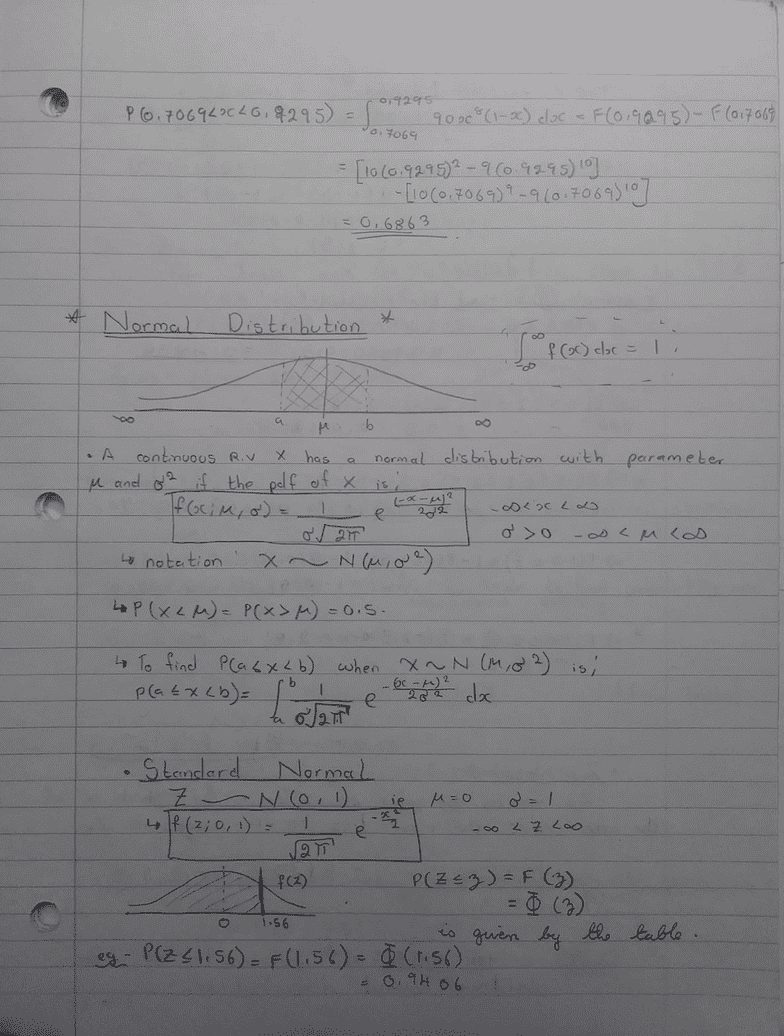 P(0.7069<x<0.9295) = ∫_{0.7069}^{0.9295} 90x⁸(1-x) dx = F(0.9295) - F(0.7069
= [10(0.9295)² - 9(0.9295)¹⁰]
-[10(0.7069)⁹ - 9(0.7069)¹⁰]
= 0.6863
* Normal Distribution *
∫_{-∞}^{∞} f(x) dx = 1
-∞ a μ b ∞
• A continuous R.V X has a normal distribution with parameter
μ and σ² if the pdf of X is;
f(x; μ, σ) = 1/(σ√2π) e^{(-x-μ)²/2σ²} -∞ < x < ∞
σ > 0 -∞ < μ < ∞
↳ notation: X ~ N(μ, σ²)
↳ P(X < μ) = P(X > μ) = 0.5.
↳ To find P(a ≤ x < b) when X ~ N(μ, σ²) is;
P(a ≤ x < b) = ∫_a^b 1/(σ√2π) e^{-(x-μ)²/2σ²} dx
• Standard Normal
Z ~ N(0, 1) ie μ = 0 σ = 1
↳ f(z; 0, 1) = 1/√2π e^{-x²/2} -∞ < Z < ∞
f(z) P(Z ≤ z) = F(z)
= Φ(z)
0 1.56
is given by the table.
eg - P(Z ≤ 1.56) = F(1.56) = Φ(1.56)
= 0.9406